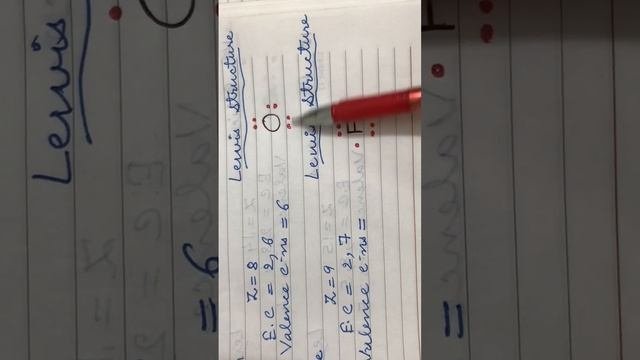 Lewis Structure
Z = 8
E.C = 2, 6
O
Valence e-ns = 6
Lewis Structure
Z = 9
E.C = 2, 7
F
Valence e-ns =